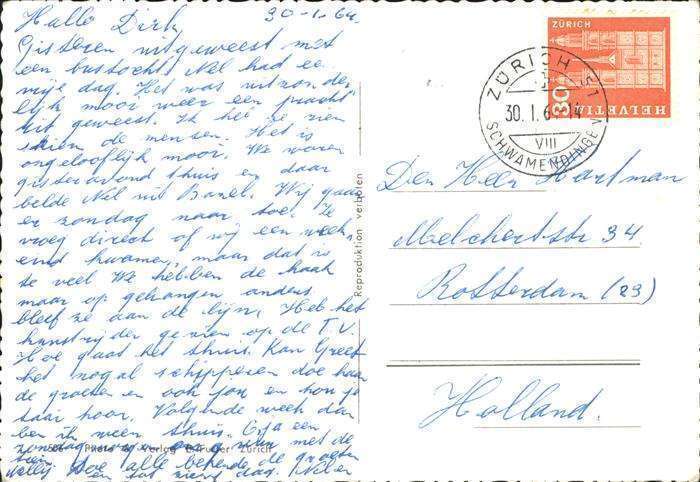 Hallo Dirk, 30-1-64.
Gisteren uitgeweest met
een bustocht. Nel had ee
vrije dag. Het was uitzonder
lijk mooi weer een pracht
rit geweest. Ik heb ze zien
skien de mensen. Het is
ongelooflijk mooi. We waren
gisteravond thuis en daar
belde Nel uit Basel. Wij gaan
er zondag naar toe. Ze
vroeg direct of wij een week
end kwamen, maar dat is
te veel We hebben de haak
maar op gehangen anders
bleef ze aan de lijn, Heb het
kunstrijden gezien op de T.V.
Hoe gaat het thuis. Kan Greet
het nogal schipperen doe haar
de groeten en ook Jon en hou je
taai hoor. Volgende week dan
ben ik weer thuis.
zondag met de
Nelly Doe alle bekende de groeten
en tot ziens dag.
Photo Verlag Zürich
Reproduktion verboten
ZÜRICH
30
HELVETIA
ZÜRICH 51
30. 1. 64 14
VIII
SCHWAMENDINGEN
Den Heer Hartman
Melchertstr 34
Rotterdam (23)
Holland.